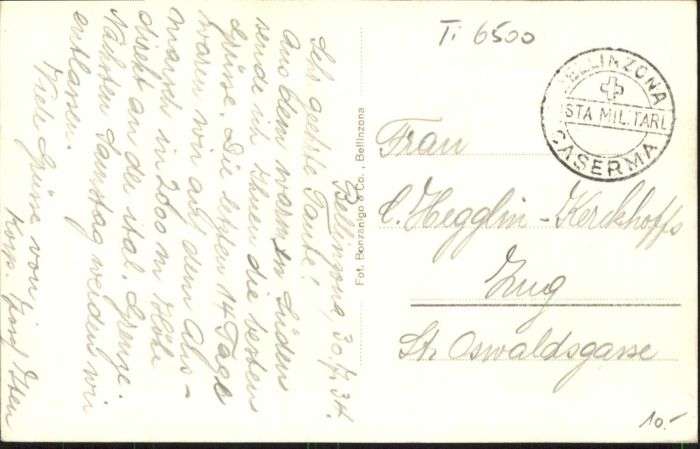 Ti 6500
BELLINZONA
POSTA MILITARE
CASERMA
Bellinzona, 30.7.34.
Seh geehrte Tante!
Aus dem warmen Süden
sende ich Ihnen die besten
Grüsse. Die letzten 14 Tage
waren wir auf dem Abis-
marsch in 2000 m Höhe
direkt an der ital. Grenze.
Nächsten Samstag werden wir
entlassen.
Viele Grüsse von
Korp. Josef Iten
Fot. Bonzanigo & Co., Bellinzona
Frau
C. Hegglin-Kerckhoffs
Zug
St. Oswaldsgasse
10.-